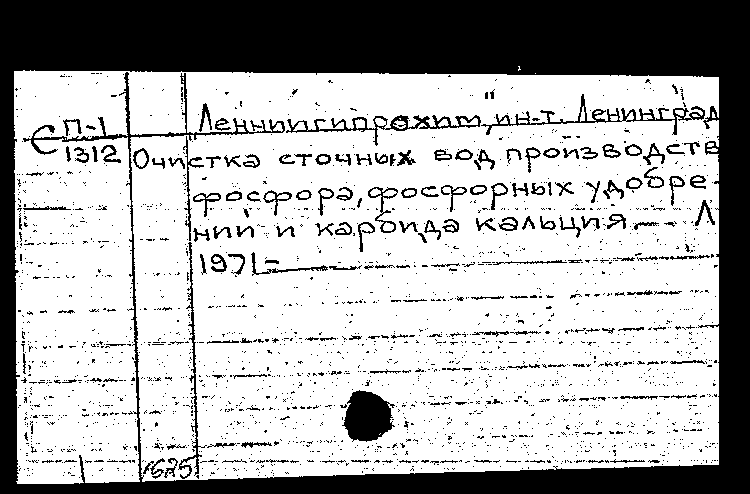 "Ленниигипрохим", ин-т. Ленинград
Є П-1
1312
Очистка сточных вод производств
фосфора, фосфорных удобре-
ний и карбида кальция. — Л
1971 —
1625